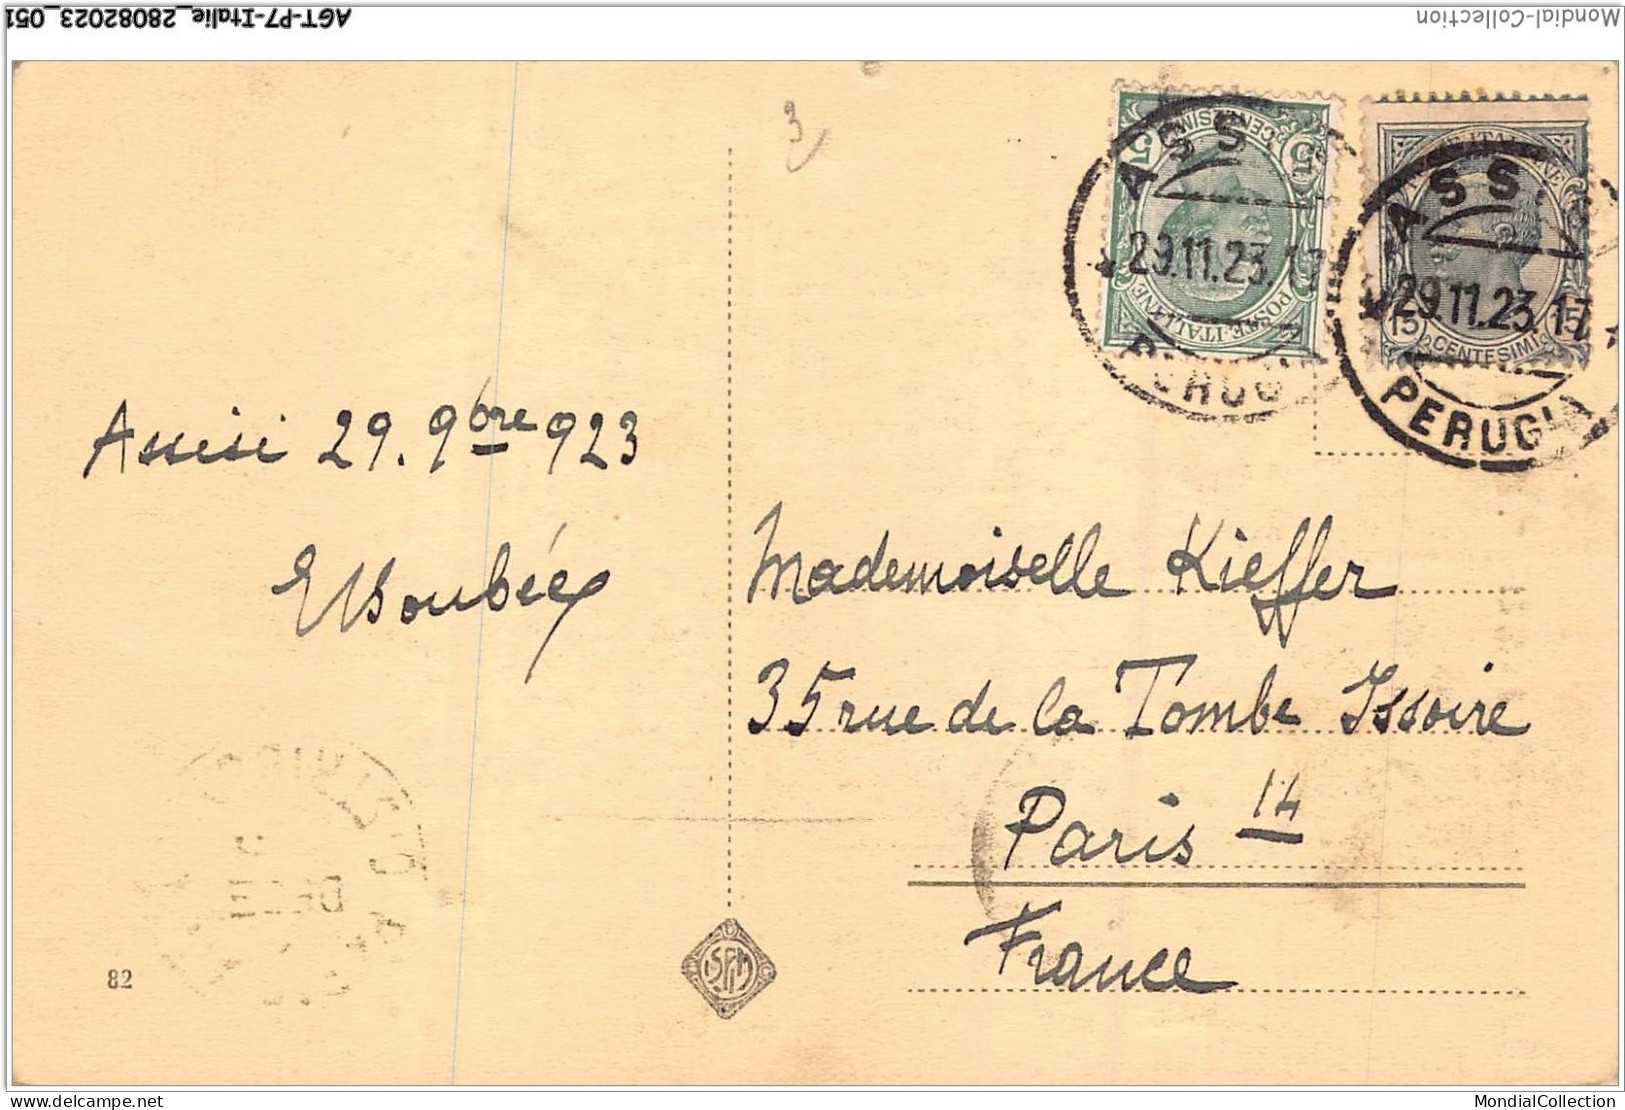 AGT-P7-Italie_28082023_051
Mondial-Collection
3
5 CENTESIMI 5
POSTE·ITALIANE
ASS
29.11.23.1
PERUG
ASSI
29.11.23.17
15 CENTESIMI 15
PERUGI
Assisi 29. 9bre 923
Mademoiselle Kieffer
35 rue de la Tombe Issoire
Paris 14
France
82
MondialCollection